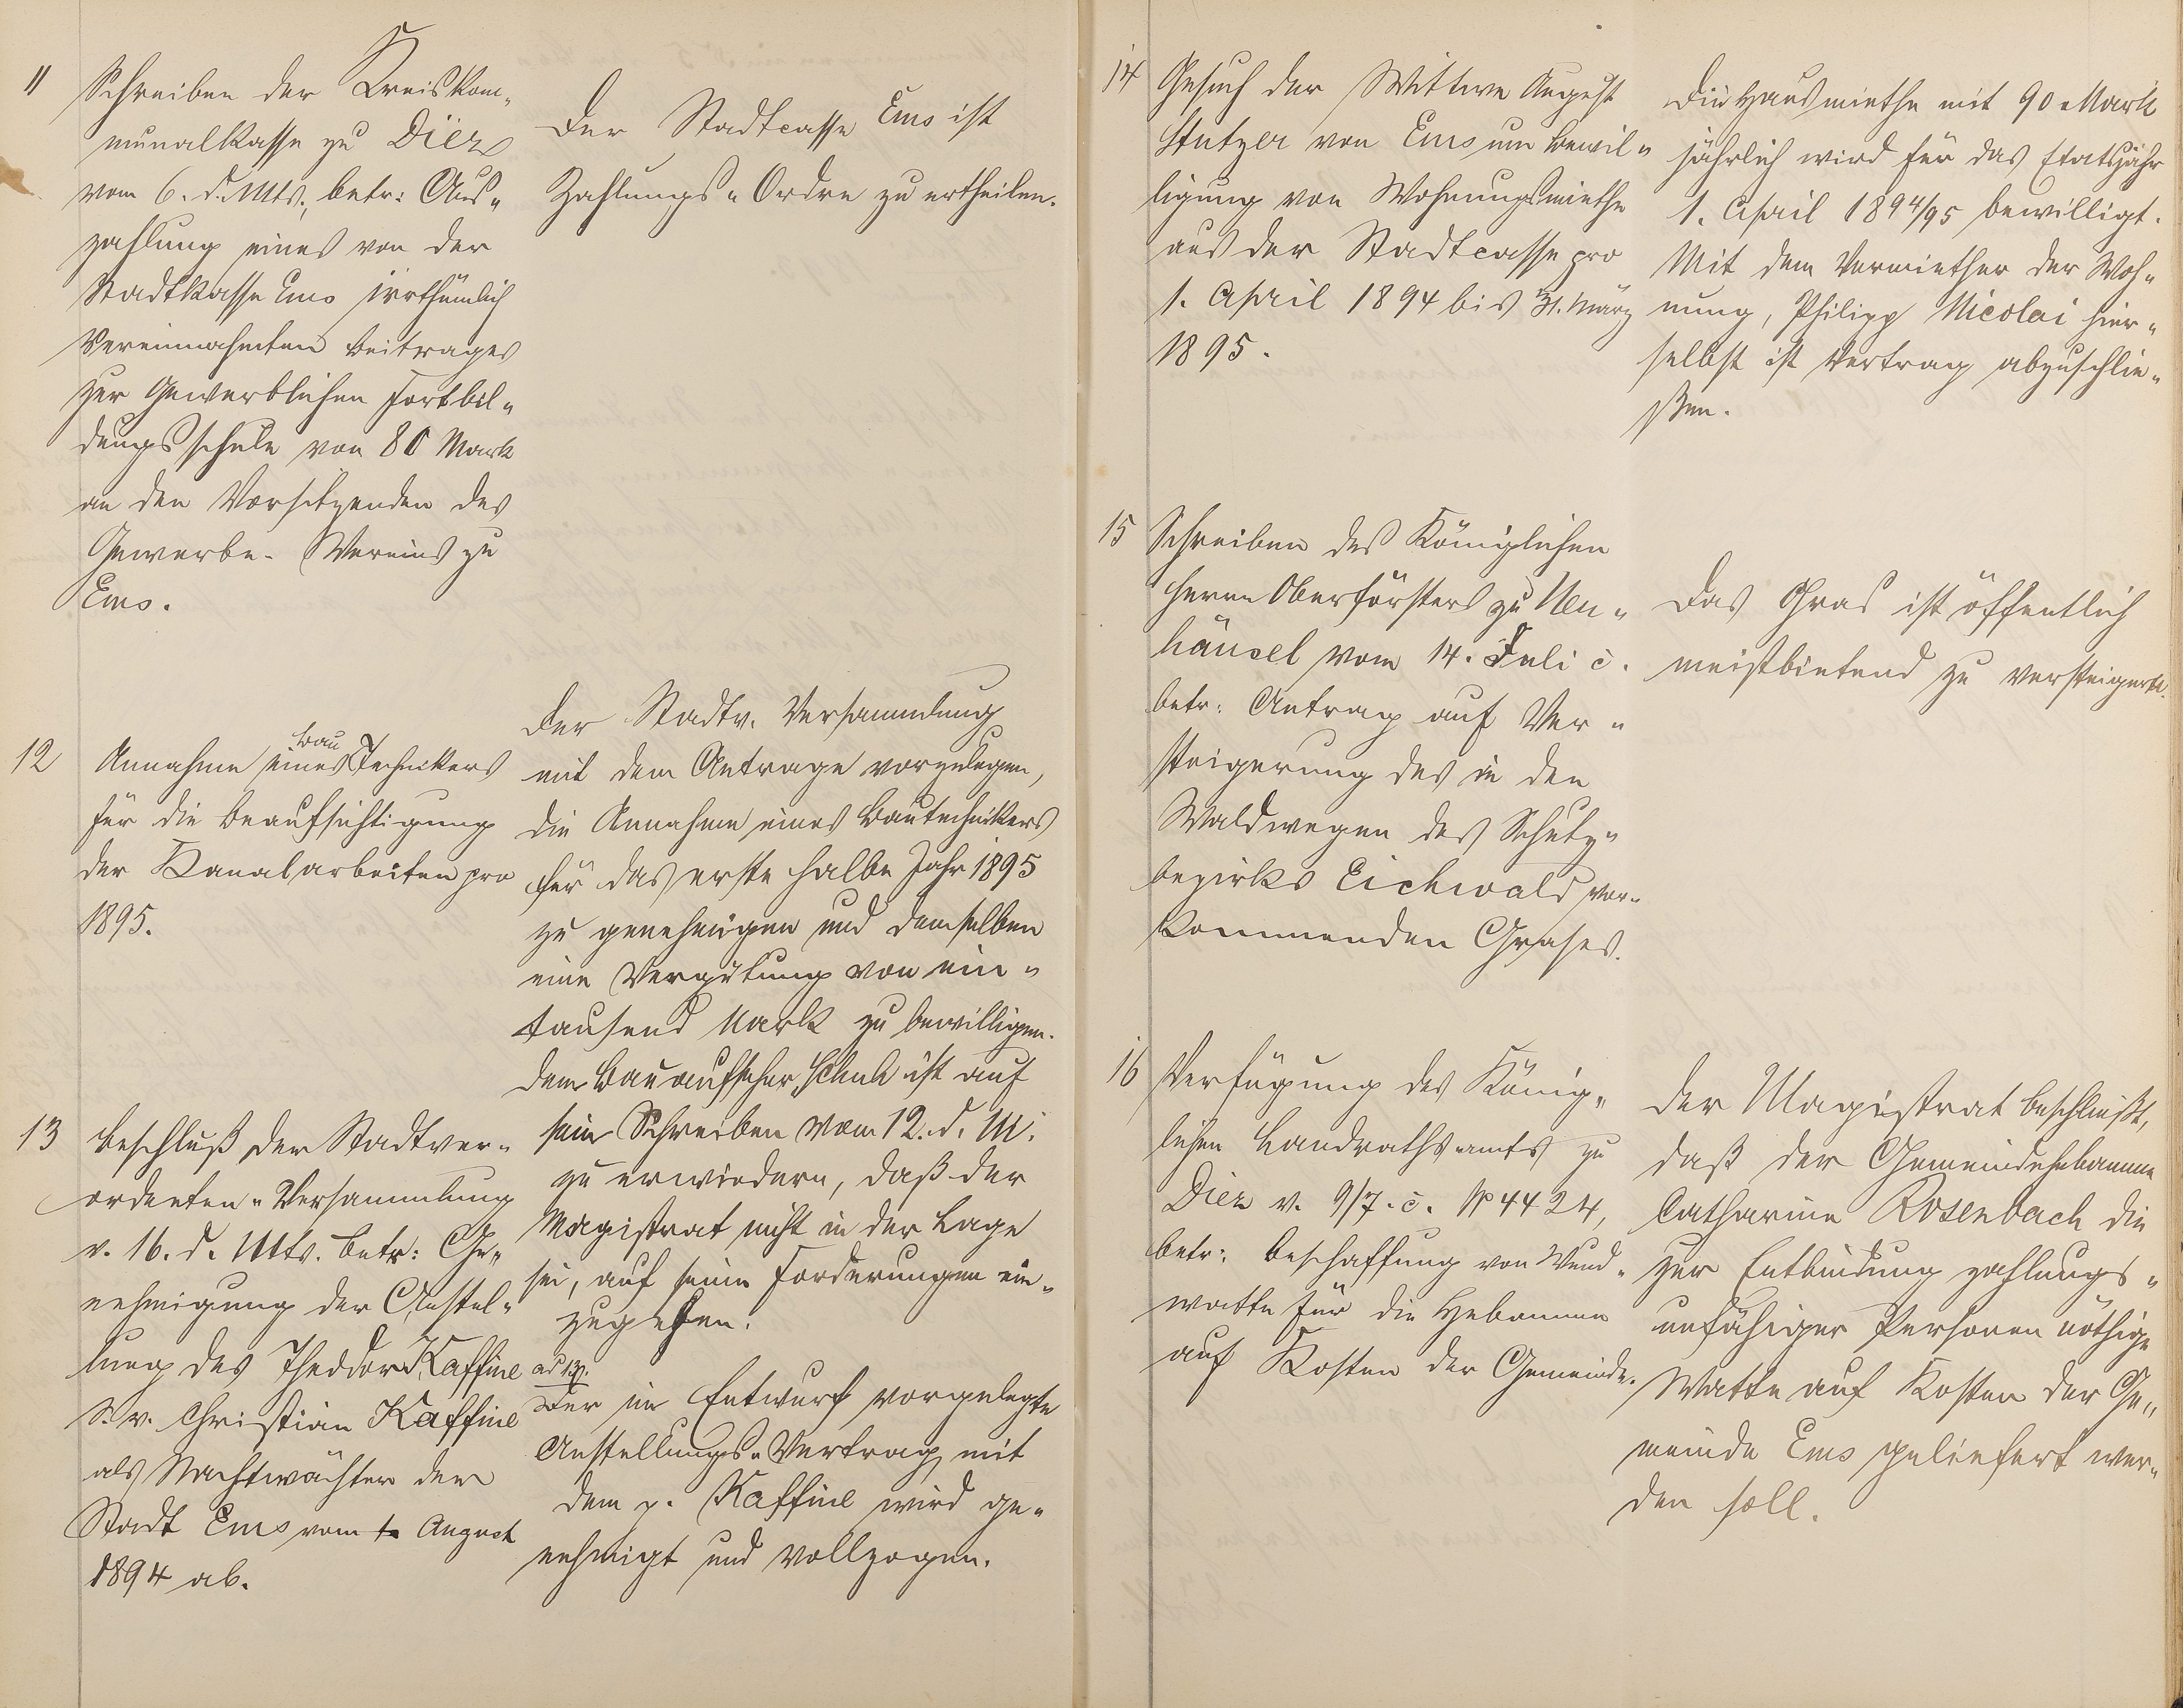 11
Schreiben der Kreiskom„
munalkasse zu Diez
vom 6. d. Mts., betr: Aus„
zahlung eines von der
Stadtkasse Ems irrthümlich
vereinnahmten Beitrages
zur Gewerblichen Fortbil„
dungsschule von 80 Mark
an den Vorsitzenden des
Gewerbe- Vereins zu
Ems.
Der Stadtcasse Ems ist
Zahlungs„Ordre zu ertheilen.
12
Annahme eines Bau Technikers
für die Beaufsichtigung
der Kanalarbeiten pro
1895.
Der Stadtv. Versammlung
mit dem Antrage vorzulegen,
die Annahme eines Bautechnikers
für das erste halbe Jahr 1895
zu genehmigen und demselben
eine Vergütung von ein„
tausend Mark zu bewilligen.
Dem Bauaufseher Schuh ist auf
sein Schreiben vom 12. d. M.
zu erwiedern, daß der
Magistrat nicht in der Lage
sei, auf seine Forderungen ein„
zugehen.
13
Beschluß der Stadtver„
ordneten„Versammlung
v. 16. d. Mts. betr: Ge„
nehmigung der Anstel„
lung des Theodor Kaffine
S. v. Christian Kaffine
als Nachtwächter der
Stadt Ems vom 1. August
1894 ab.
ad 13.
Der im Entwurf vorgelegte
Anstellungs„Vertrag mit
dem p. Kaffine wird ge„
nehmigt und vollzogen.
14
Gesuch der Wittwe August
Stutzer von Ems um Bewil„
ligung von Wohnungsmiethe
aus der Stadtcasse pro
1. April 1894 bis 31. März
1895.
Die Hausmiethe mit 90 Mark
jährlich wird für das Etatsjahr
1. April 1894/95 bewilligt.
Mit dem Vermiether der Woh„
nung, Philipp Nicolai hier„
selbst ist Vertrag abzuschlie„
ßen.
15
Schreiben des Königlichen
Herrn Oberförsters zu Neu„
häusel vom 14. Juli c.
betr: Antrag auf Ver„
steigerung des in den
Waldwegen des Schutz„
bezirks Eichwald vor„
kommenden Grases.
Das Gras ist öffentlich
meistbietend zu versteigern.
16
Verfügung des König„
lichen Landrathsamts zu
Diez v. 9/7. c. № 4424,
betr: Beschaffung von Wund„
watte für die Hebammen
auf Kosten der Gemeinde.
Der Magistrat beschließt,
daß der Gemeindehebamme
Catharine Rosenbach die
zur Entbindung zahlungs„
unfähiger Personen nöthige
Watte auf Kosten der Ge„
meinde Ems geliefert wer„
den soll.